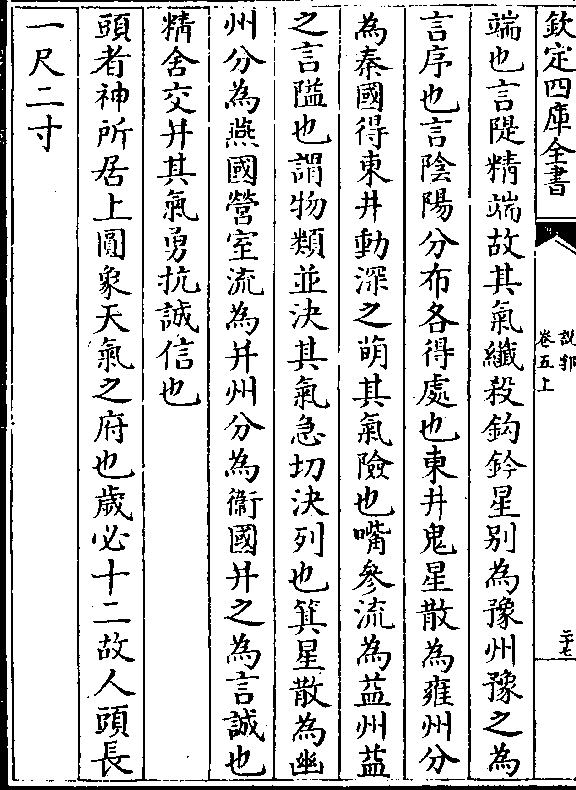 欽定四庫全書
說郛
卷五上
二十七
端也言隄精端故其氣纖殺鈎鈐星别為豫州豫之為
言序也言陰陽分布各得處也東井鬼星散為雍州分
為秦國得東井動深之萌其氣險也嘴參流為益州益
之言隘也謂物類並決其氣急切決列也箕星散為幽
州分為燕國營室流為并州分為衞國并之為言誠也
精舍交并其氣勇抗誠信也
頭者神所居上圓象天氣之府也歲必十二故人頭長
一尺二寸